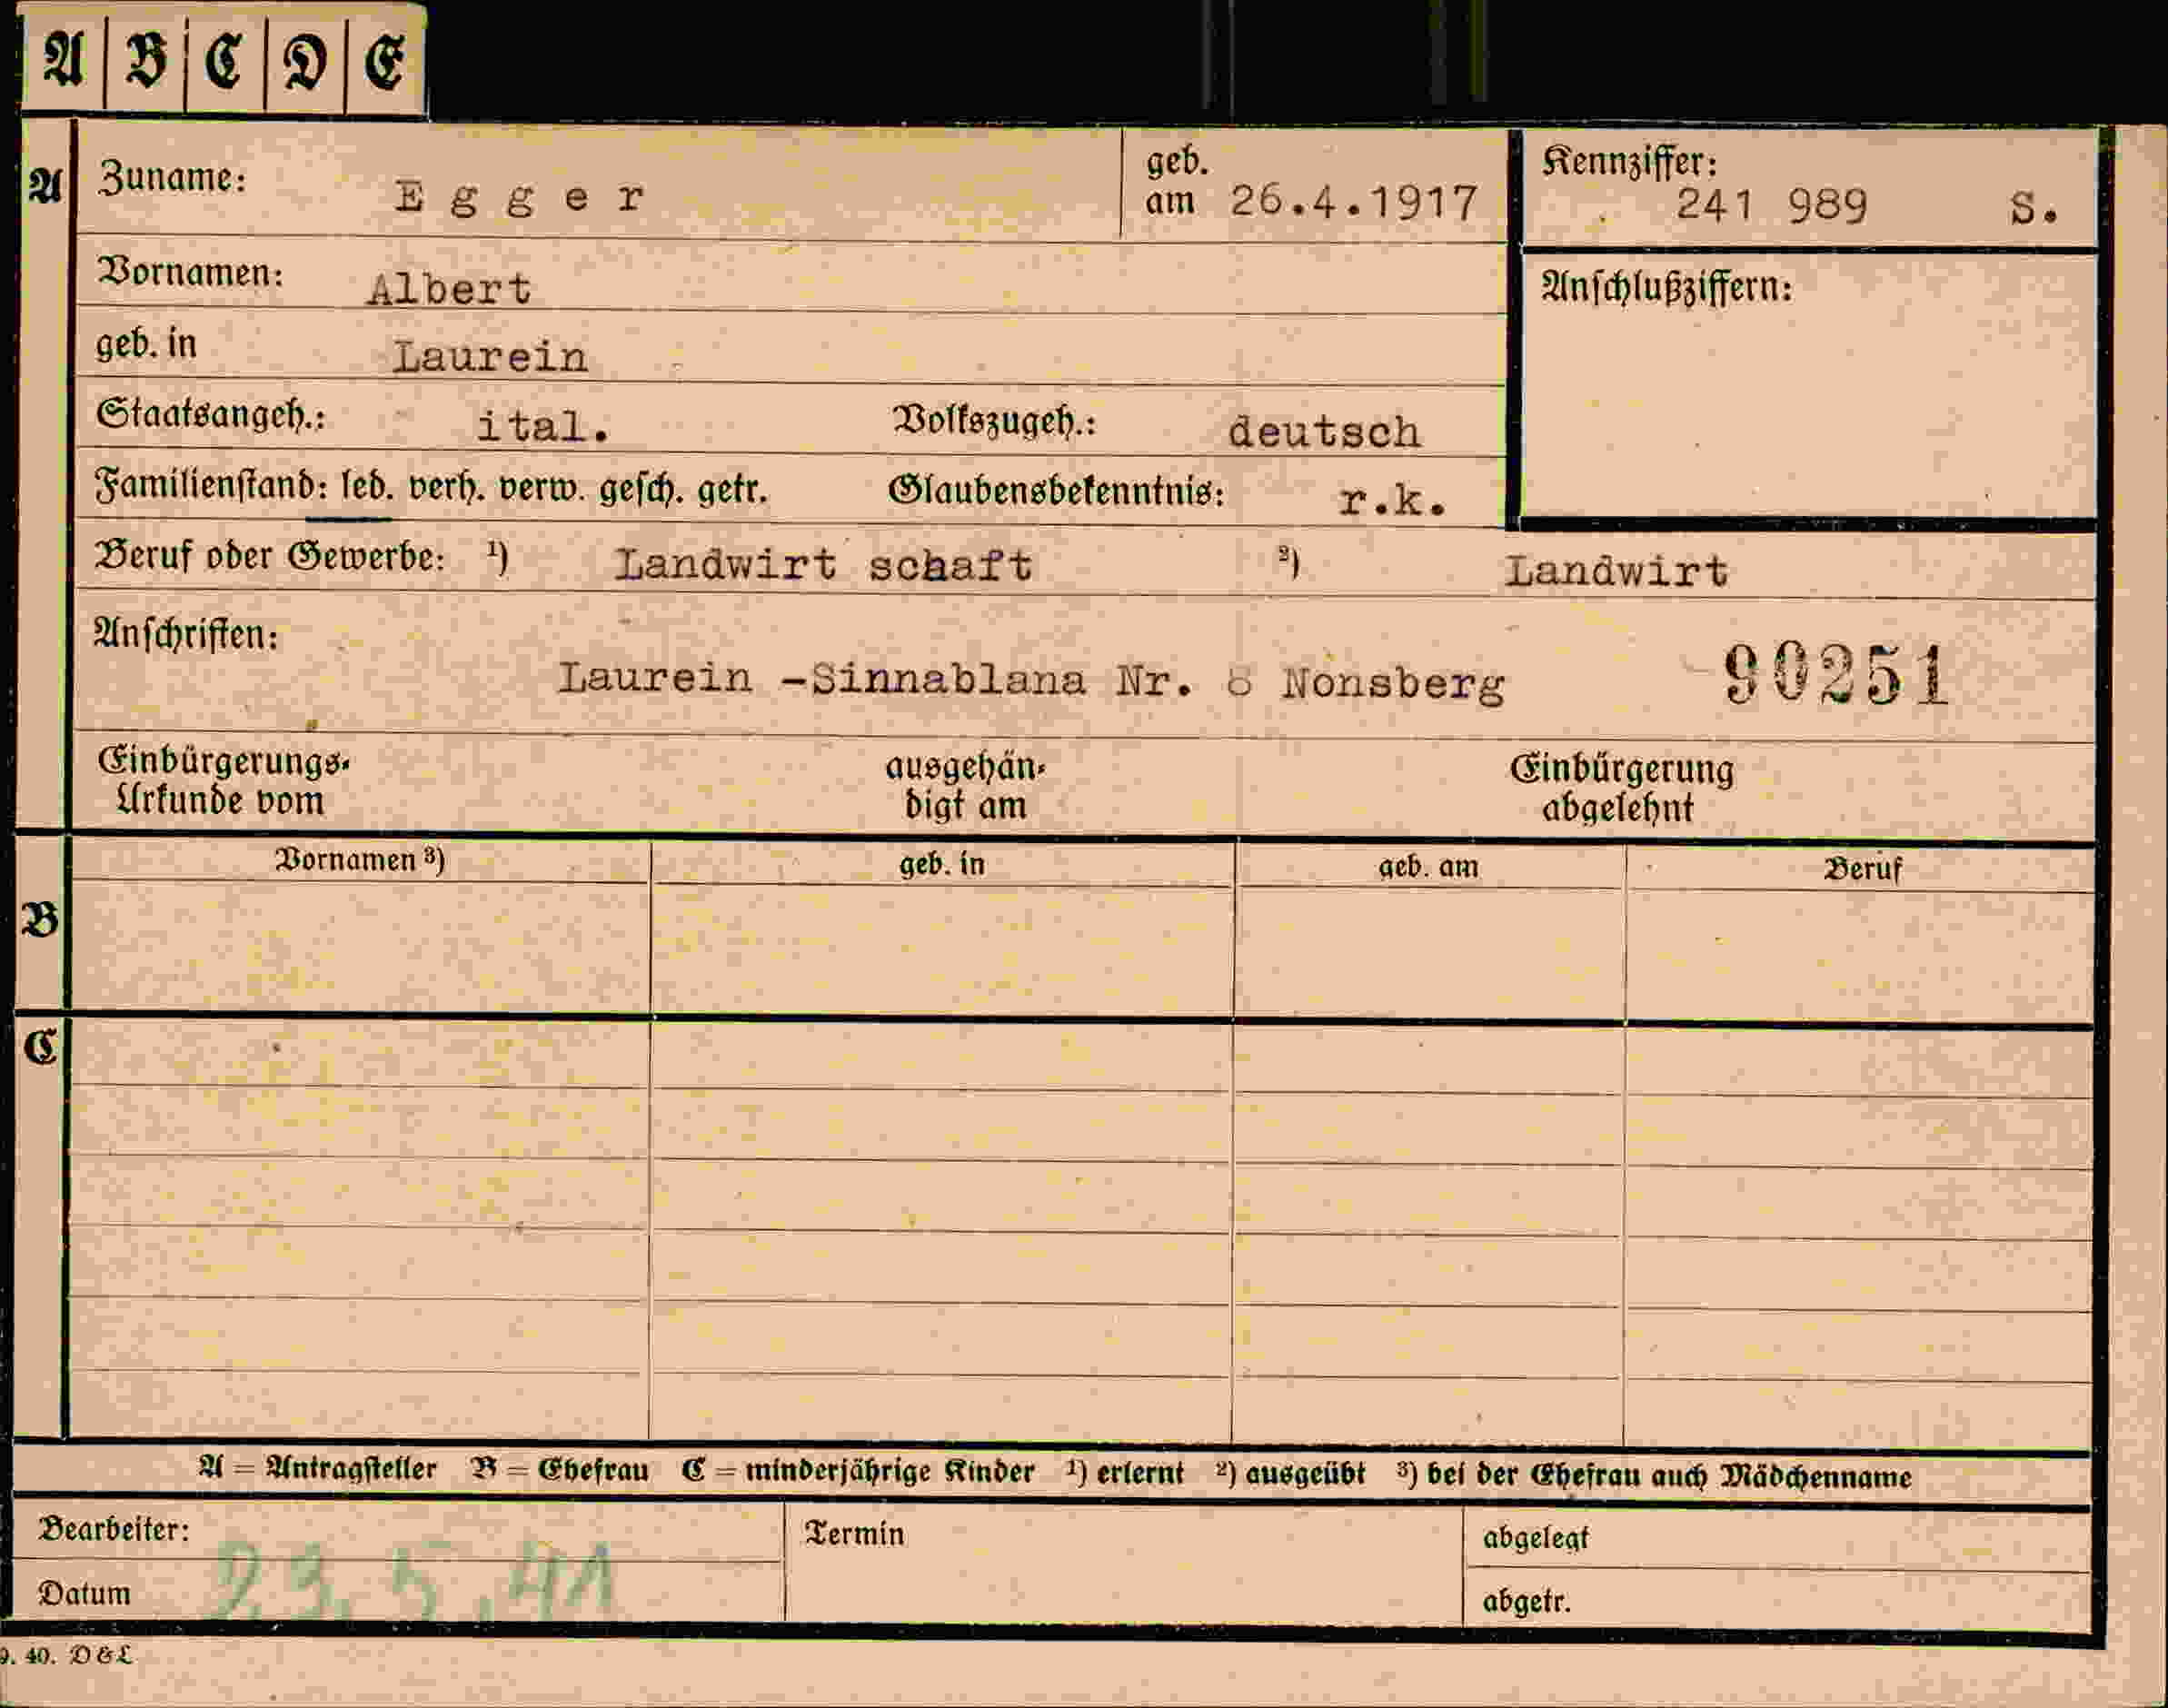 A B C D E
A Zuname: Egger geb. am 26.4.1917 Kennziffer: 241 989 S.
Vornamen: Albert Anschlußziffern:
geb. in Laurein
Staatsangeh.: ital. Volkszugeh.: deutsch
Familienstand: led. verh. verw. gesch. getr. Glaubensbekenntnis: r.k.
Beruf oder Gewerbe: 1) Landwirt schaft 2) Landwirt
Anschriften:
Laurein -Sinnablana Nr. 8 Nonsberg 90251
Einbürgerungs- ausgehän- Einbürgerung
Urkunde vom digt am abgelehnt
Vornamen 3) geb. in geb. am Beruf
B
C
A = Antragsteller B = Ehefrau C = minderjährige Kinder 1) erlernt 2) ausgeübt 3) bei der Ehefrau auch Mädchenname
Bearbeiter: Termin abgelegt
Datum 23.5.41 abgetr.
9. 40. D & L